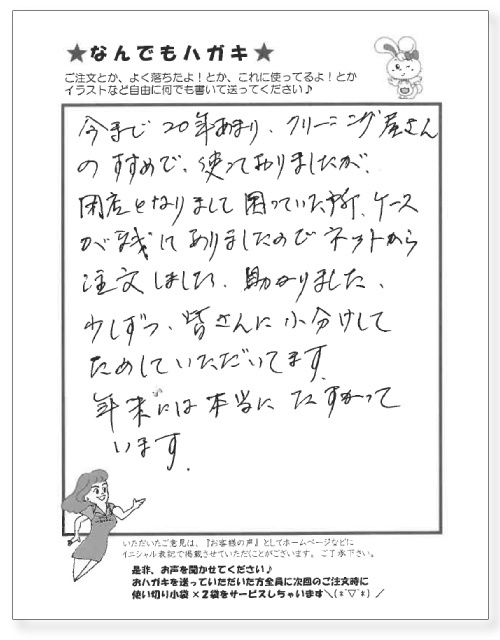 ★なんでもハガキ★
ご注文とか、よく落ちたよ！とか、これに使ってるよ！とか
イラストなど自由に何でも書いて送ってください♪
今まで20年あまり、クリーニング屋さん
のすすめで、使っておりましたが、
閉店となりまして困っていた所、ケース
が残にありましたのでネットから
注文しました、助かりました、
少しずつ、皆さんに小分けして
ためしていただいてます。
年末には本当にたすかって
います。
いただいたご意見は、『お客様の声』としてホームページなどに
イニシャル表記で掲載させていただくことがございます。ご了承下さい。
是非、お声を聞かせてください♪
おハガキを送っていただいた方全員に次回のご注文時に
使い切り小袋×2袋をサービスしちゃいます＼(*ˆ▽ˆ*)／